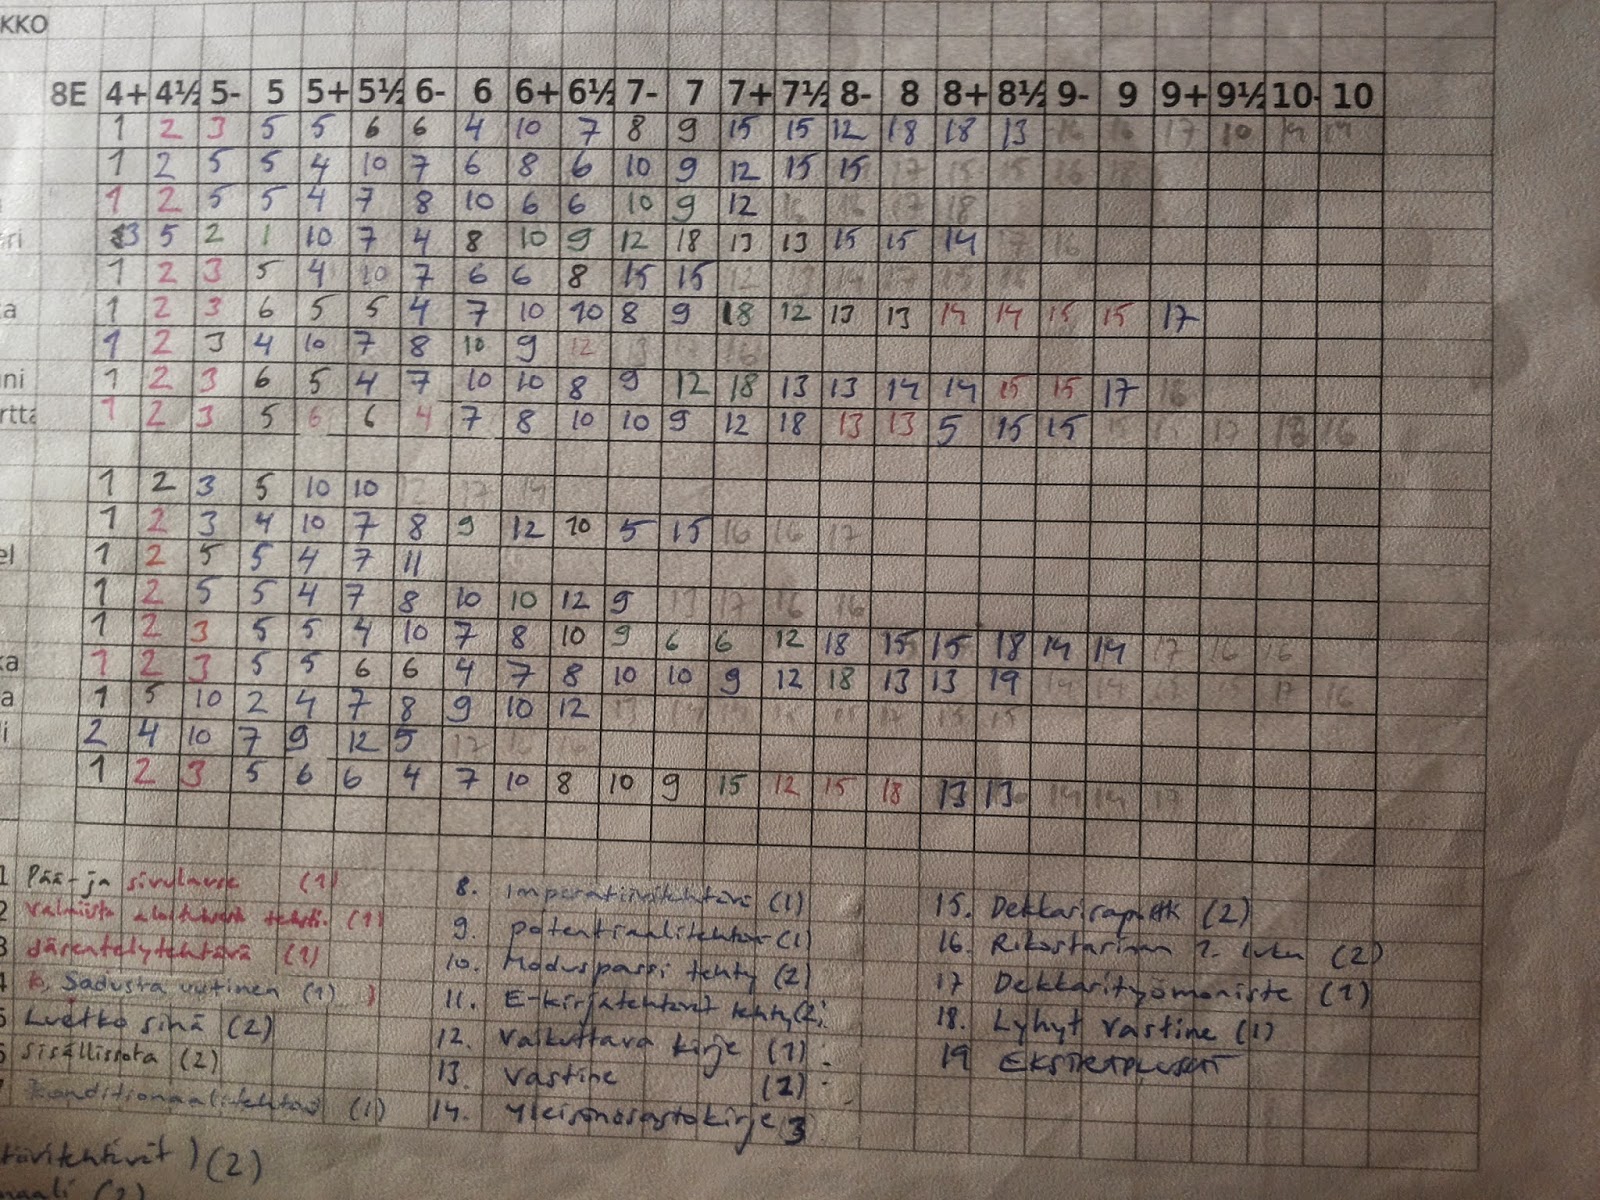 KKO
8E 4+ 4½ 5- 5 5+ 5½ 6- 6 6+ 6½ 7- 7 7+ 7½ 8- 8 8+ 8½ 9- 9 9+ 9½ 10- 10
1 2 3 5 5 6 6 4 10 7 8 9 15 15 12 18 18 13 16 16 17 10 14 14
1 2 5 5 4 10 7 6 8 6 10 9 12 15 15 17 15 15 16
1 2 5 5 4 7 8 10 6 6 10 9 12 16 16 17 18
ri 3 5 2 1 10 7 4 8 10 9 12 18 13 13 15 15 14 17 16
1 2 3 5 4 10 7 6 6 8 15 15 12 13 14 17
a 1 2 3 6 5 5 4 7 10 10 8 9 18 12 13 13 14 14 15 15 17
1 2 3 4 10 7 8 10 9 12 16
ni 1 2 3 6 5 4 7 10 10 8 9 12 18 13 13 14 14 15 15 17 16
rtta 1 2 3 5 6 6 4 7 8 10 10 9 12 18 13 13 5 15 15 17 18 16
1 2 3 5 10 10 17 14
1 2 3 4 10 7 8 9 12 10 5 15 16 16 17
el 1 2 5 5 4 7 11
1 2 5 5 4 7 8 10 10 12 9 13 17 16 16
1 2 3 5 5 4 10 7 8 10 9 6 6 12 18 15 15 18 14 14 17 16 16
ka 1 2 3 5 5 6 6 4 7 8 10 10 9 12 18 13 13 19 14 14 17 16
a 1 5 10 2 4 7 8 9 10 12 13 14 14 17 15 15
i 2 4 10 7 9 12 5 17 16 16
1 2 3 5 6 6 4 7 10 8 10 9 15 12 15 18 13 13 14 14 17
1 Pää- ja sivulause (1)
2 Valmiista tehti. (1)
3 Järjentelytehtävä (1)
Sadusta uutinen (1)
5 Luetko sinä (2)
6 Sisällissota (2)
7 Konditionaalitehtävä (1)
8. Imperatiivitehtävä (1)
9. Potentiaalitehtävä (1)
10. Moduspassi tehty (2)
11. E-kirjatehtävät tehty (2)
12. Vaikuttava kirje (1)
13. Vastine (2)
14. Yleisönosastokirje 3
15. Dekkariraportti (2)
16. Rikostarinan 2. luku (2)
17 Dekkarityömoniste (1)
18. Lyhyt vastine (1)
19 EKSTRAPLUSSAT
(2)